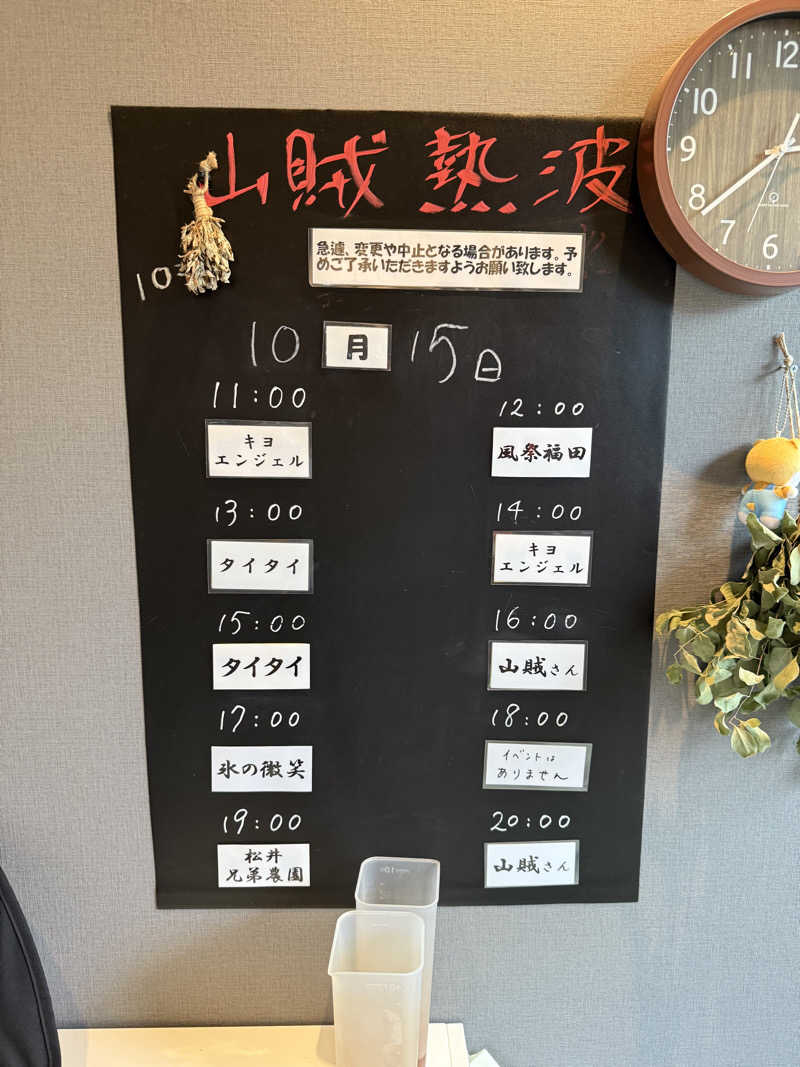 山賊熱波
急遽、変更や中止となる場合があります。予
めご了承いただきますようお願い致します。
10
10 月 15日
11:00
キヨ
エンジェル
12:00
風祭福田
13:00
タイタイ
14:00
キヨ
エンジェル
15:00
タイタイ
16:00
山賊さん
17:00
氷の微笑
18:00
イベントは
ありません
19:00
松井
兄弟農園
20:00
山賊さん
12
11
10
9
8
7
6